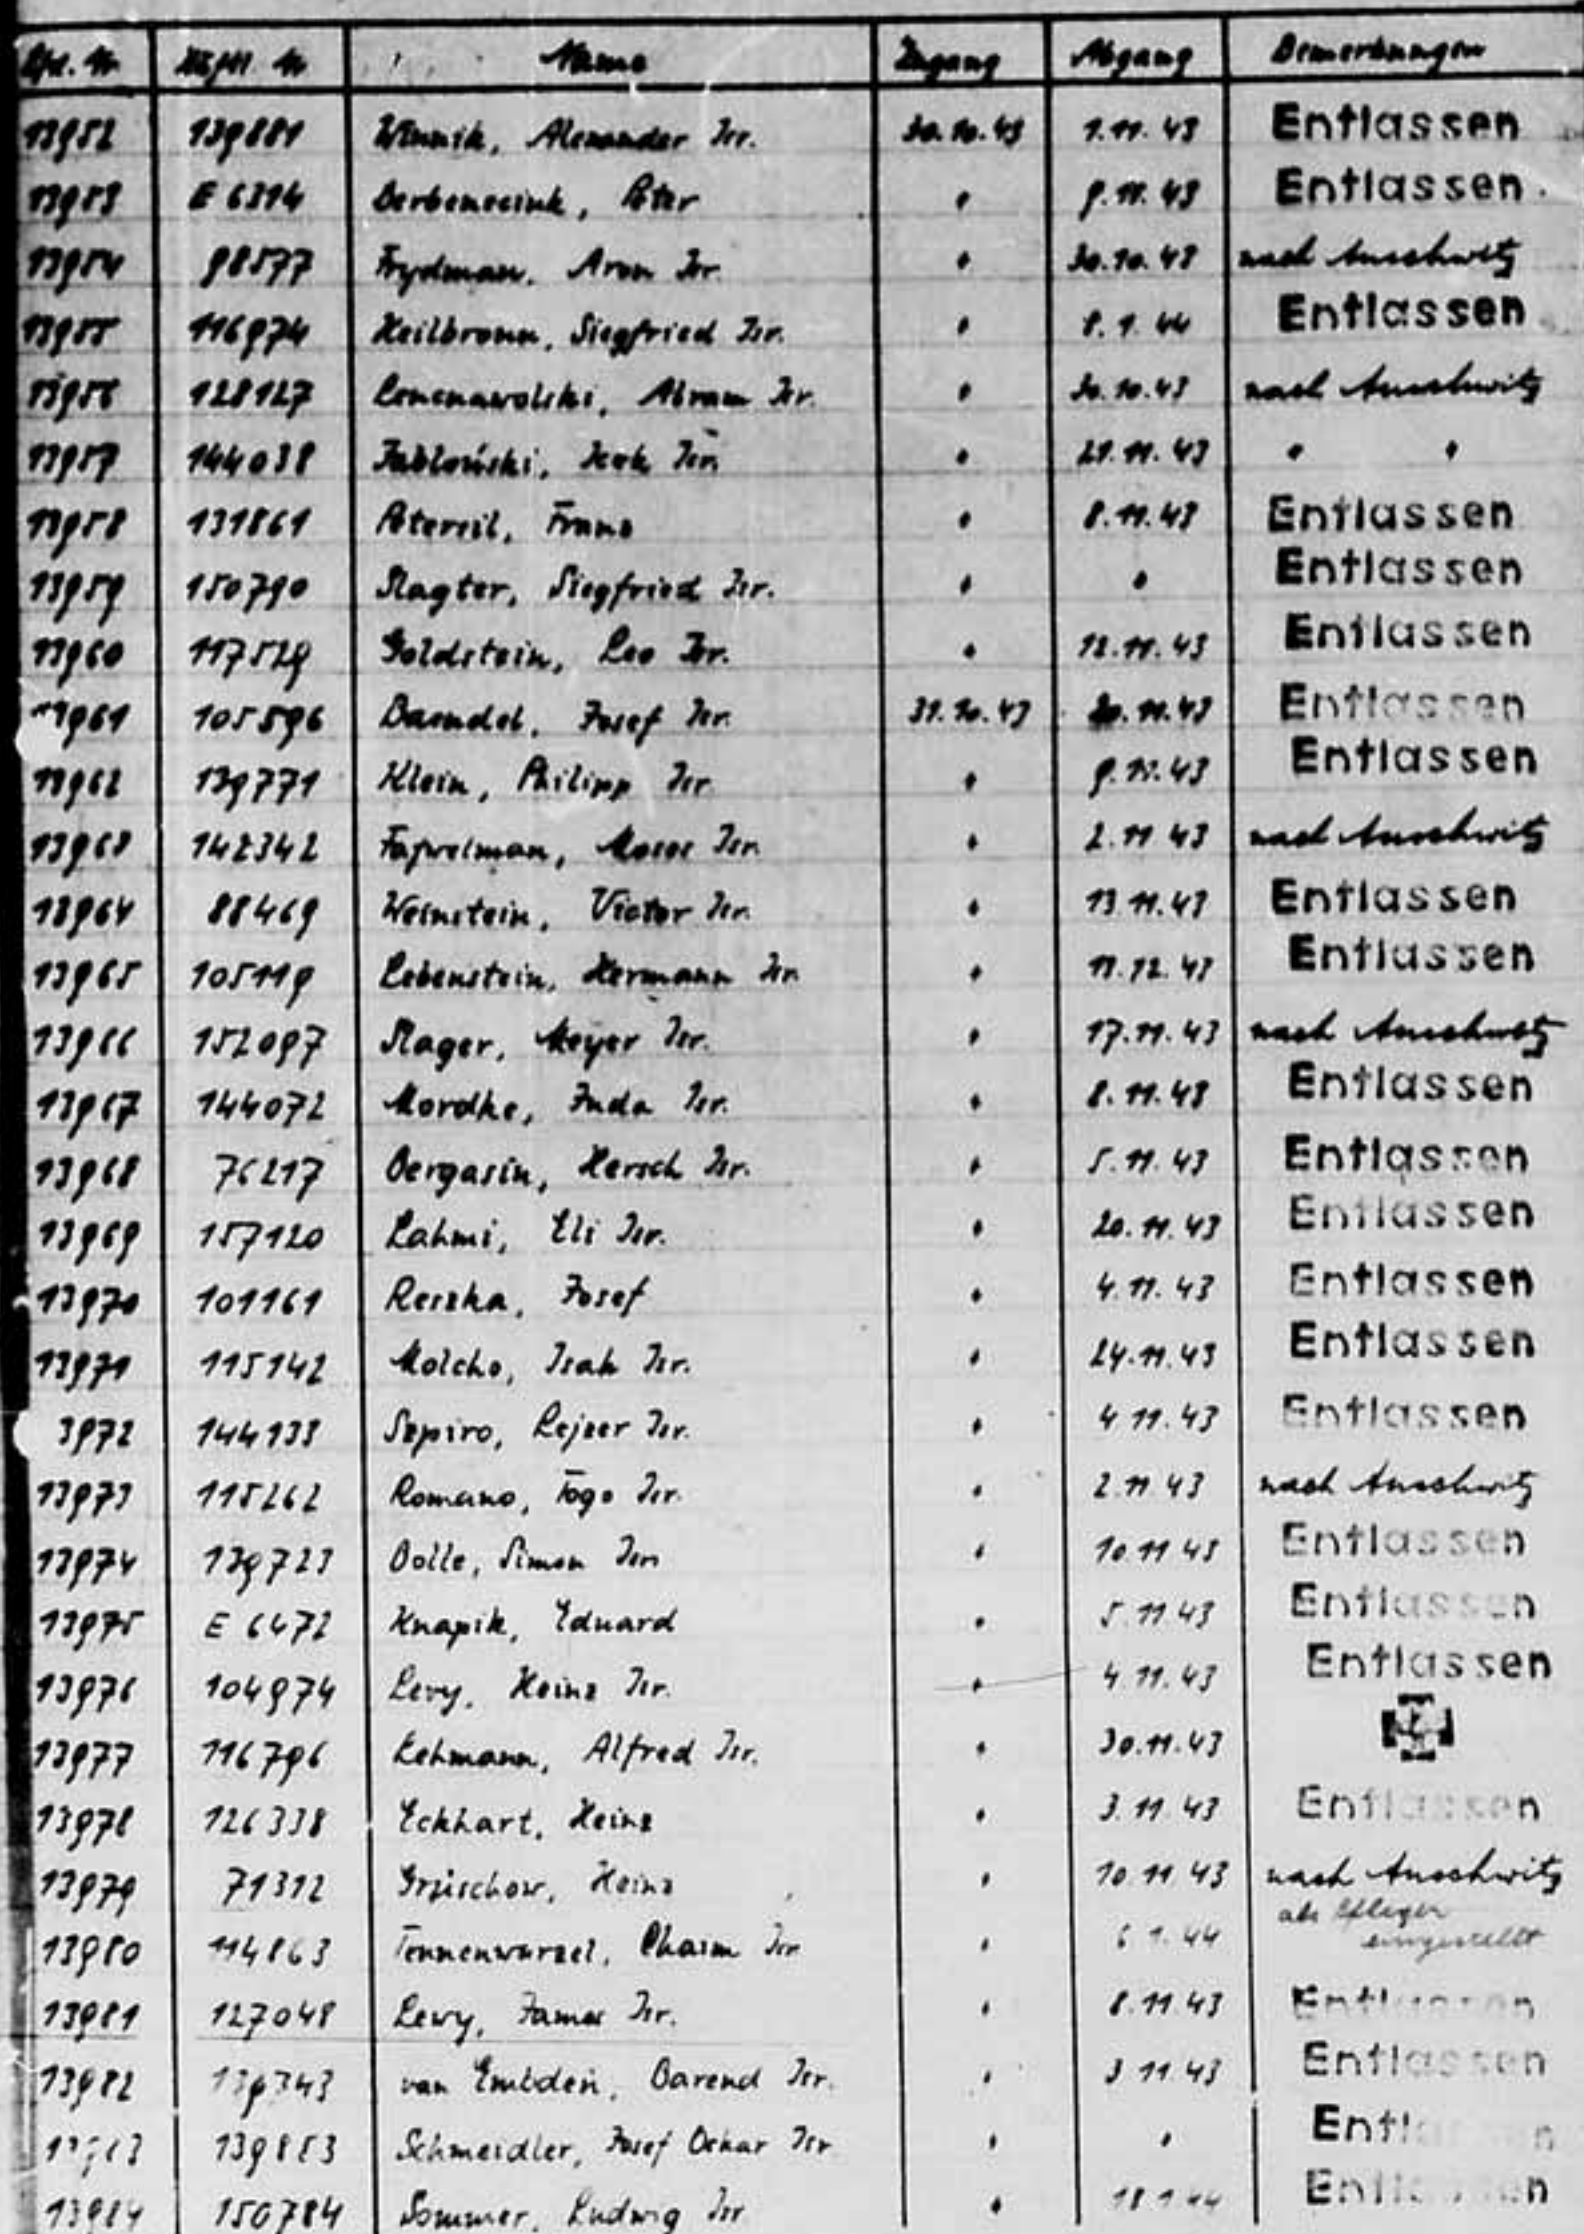 Lfd. Nr Häftl. Nr Name Zugang Abgang Bemerkungen
13952 139881 Winnik, Alexander Isr. 30.10.43 1.11.43 Entlassen
13953 E 6314 Peter " 9.11.43 Entlassen
13954 98577 Frydman, Aron Isr. " 30.10.43 nach Auschwitz
13955 116974 Heilbronn, Siegfried Isr. " 8.1.44 Entlassen
13956 128127 Abram Isr. " 30.10.43 nach Auschwitz
13957 144038 Jabłoński, Icek Isr. " 21.11.43 " "
13958 131861 Franz " 8.11.43 Entlassen
13959 150790 Slagter, Siegfried Isr. " " Entlassen
13960 117529 Goldstein, Leo Isr. " 12.11.43 Entlassen
13961 105596 Josef Isr. 31.10.43 .11.43 Entlassen
13962 139771 Klein, Philipp Isr. " 9.11.43 Entlassen
13963 142342 Fajwelman, Moses Isr. " 2.11.43 nach Auschwitz
13964 88469 Weinstein, Victor Isr. " 13.11.43 Entlassen
13965 105119 Lebenstein, Hermann Isr. " 11.12.43 Entlassen
13966 152097 Slager, Meyer Isr. " 17.11.43 nach Auschwitz
13967 144072 Mordke, Juda Isr. " 8.11.43 Entlassen
13968 76217 Bergasin, Hersch Isr. " 5.11.43 Entlassen
13969 157120 Lahmi, Eli Isr. " 20.11.43 Entlassen
13970 101161 Reszka, Josef " 4.11.43 Entlassen
13971 115142 Molcho, Isak Isr. " 24.11.43 Entlassen
3972 144133 Szpiro, Lejzer Isr. " 4.11.43 Entlassen
13973 115262 Romano, Togo Isr. " 2.11.43 nach Auschwitz
13974 139723 Dolle, Simon Isr. " 10.11.43 Entlassen
13975 E 6472 Knapik, Eduard " 5.11.43 Entlassen
13976 104974 Levy, Heinz Isr. " 4.11.43 Entlassen
13977 116796 Lehmann, Alfred Isr. " 30.11.43
13978 126338 Eckhart, Heinz " 3.11.43 Entlassen
13979 71312 Grüschow, Heinz " 10.11.43 nach Auschwitz
13980 114863 Tennenwurzel, Chaim Isr. " 6.1.44 als Pfleger
eingestellt
13981 127048 Lewy, James Isr. " 8.11.43 Entlassen
13982 139743 van Embden, Barend Isr. " 3.11.43 Entlassen
139853 Schmeidler, Josef Oskar Isr. " " Entlassen
13984 150784 Sommer, Ludwig Isr. " 18.1.44 Entlassen